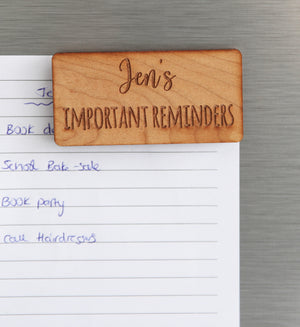 Jen's
IMPORTANT REMINDERS
BOOK
School Bake-sale
BOOK party
call Hairdressers